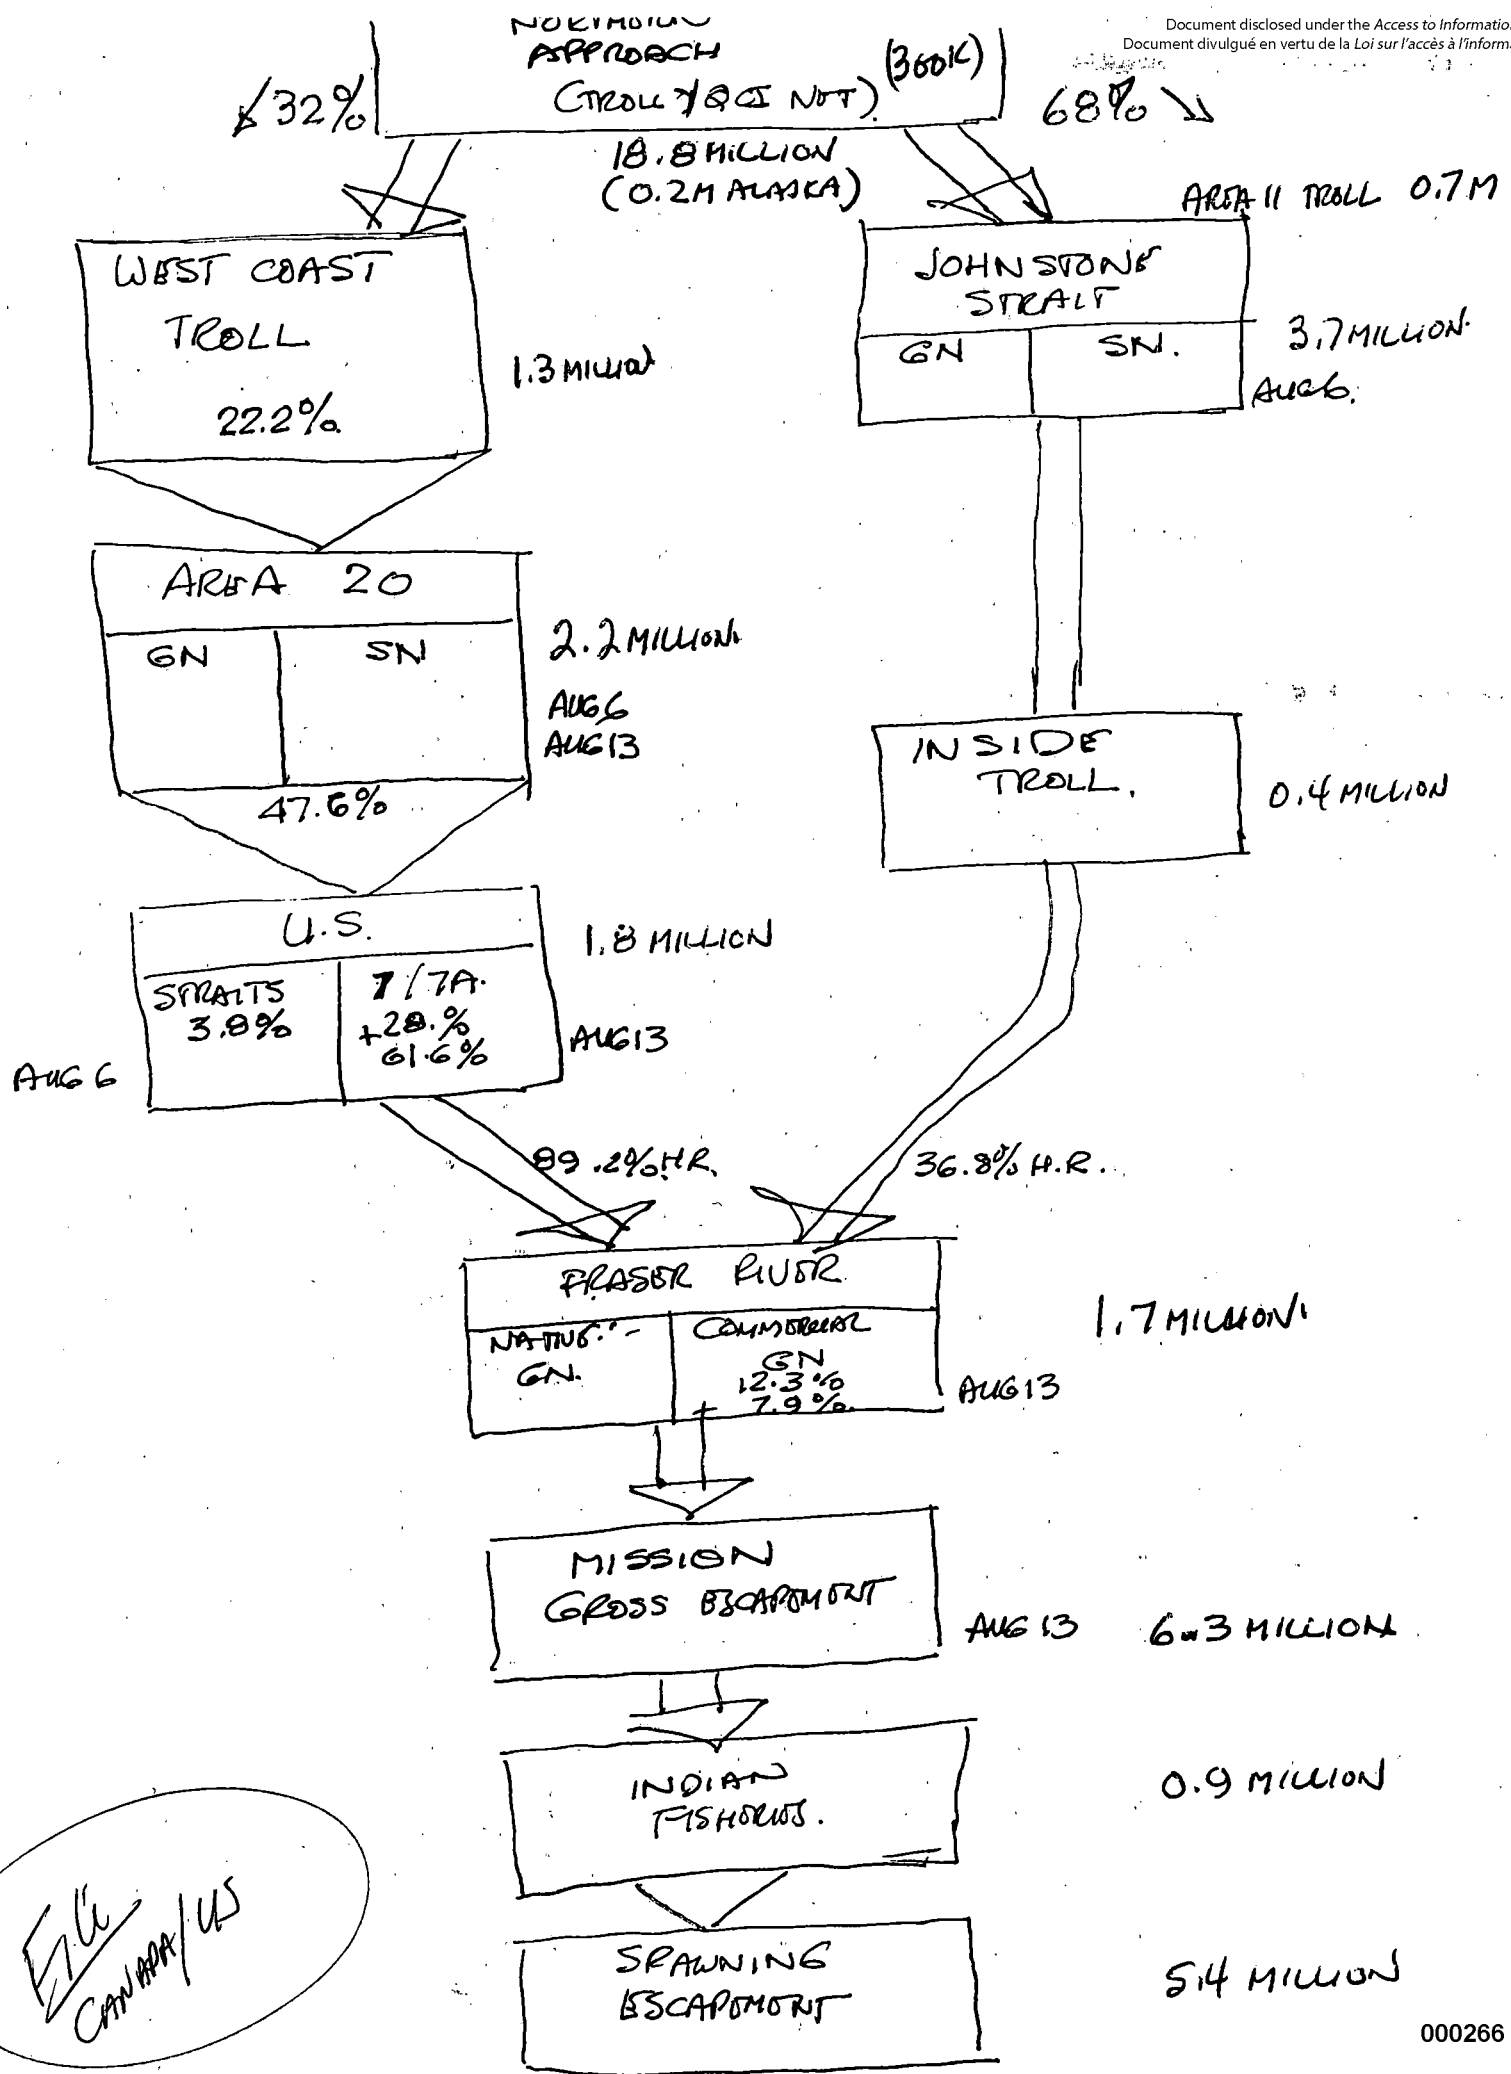 Document disclosed under the Access to Informatio
Document divulgué en vertu de la Loi sur l'accès à l'inform
APPROACH
(300K)
(TROLL QCI NET)
32%
68%
18.8 MILLION
(0.2M ALASKA)
AREA 11 TROLL 0.7M
WEST COAST
TROLL
22.2%
1.3 MILLION
JOHNSTONE
STRAIT
GN SN.
3.7 MILLION.
AUG 6.
AREA 20
GN SN
47.6%
2.2 MILLION.
AUG 6
AUG 13
INSIDE
TROLL.
0.4 MILLION
U.S.
STRAITS
3.8%
7/7A.
+28.%
61.6%
1.8 MILLION
AUG 13
AUG 6
89.2% H.R.
36.8% H.R.
FRASER RIVER
NATIVE
GN.
COMMERCIAL
GN
12.3%
+ 7.9%.
1.7 MILLION
AUG 13
MISSION
GROSS ESCAPEMENT
AUG 13 6.3 MILLION
INDIAN
FISHERIES.
0.9 MILLION
SPAWNING
ESCAPEMENT
5.4 MILLION
CANADA/US
000266